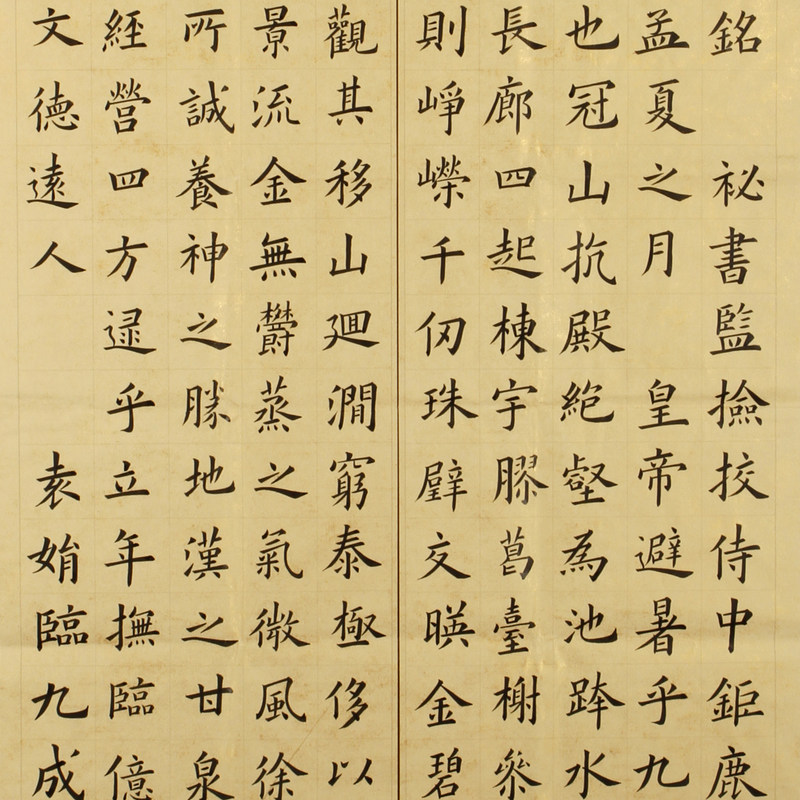 銘 祕書監撿挍侍中鉅鹿
孟夏之月 皇帝避暑乎九
也冠山抗殿絶壑為池跨水
長廊四起棟宇膠葛臺榭參
則崢嶸千仞珠璧交暎金碧
觀其移山廻澗窮泰極侈以
景流金無鬱蒸之氣微風徐
所誠養神之勝地漢之甘泉
經營四方逮乎立年撫臨億
文德遠人 袁娟臨九成